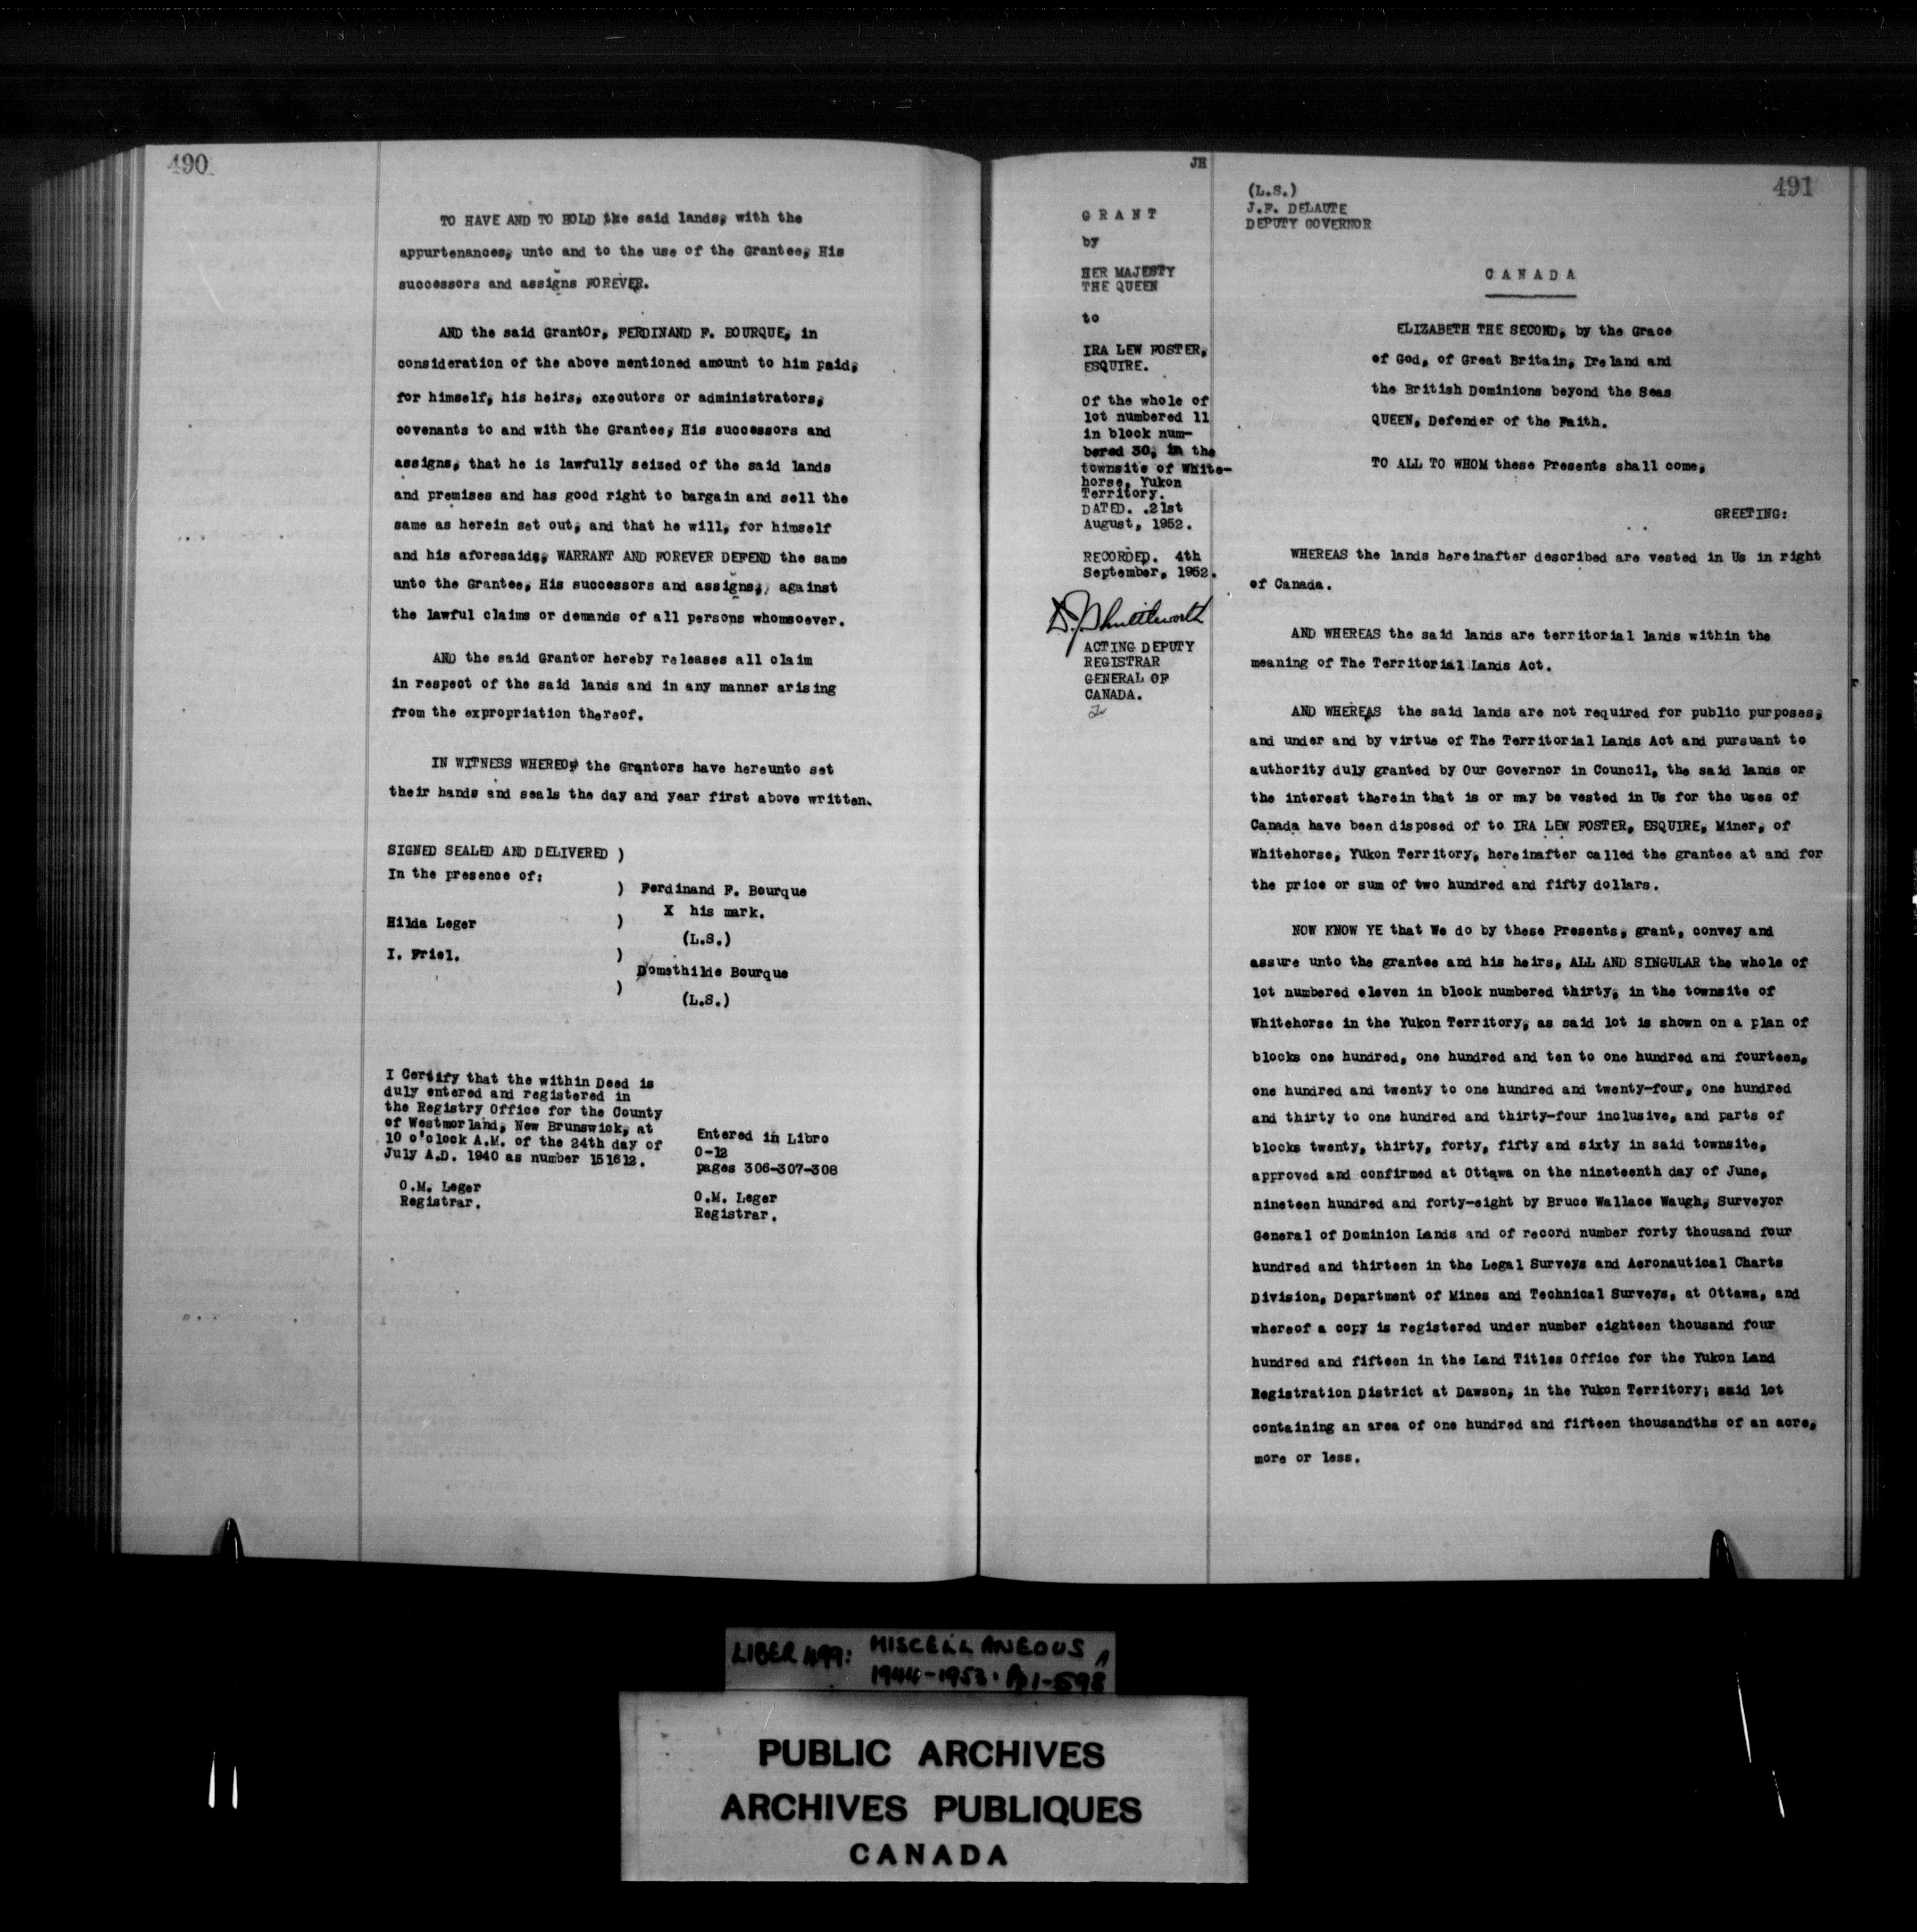 490
TO HAVE AND TO HOLD the said lands, with the
appurtenances, unto and to the use of the Grantee, His
successors and assigns FOREVER.
AND the said GrantOr, FERDINAND F. BOURQUE, in
consideration of the above mentioned amount to him paid,
for himself, his heirs, executors or administrators,
covenants to and with the Grantee, His successors and
assigns, that he is lawfully seized of the said lands
and premises and has good right to bargain and sell the
same as herein set out, and that he will, for himself
and his aforesaids, WARRANT AND FOREVER DEFEND the same
unto the Grantee, His successors and assigns, against
the lawful claims or demands of all persons whomsoever.
AND the said Grantor hereby releases all claim
in respect of the said lands and in any manner arising
from the expropriation thereof.
IN WITNESS WHEREOF the Grantors have hereunto set
their hands and seals the day and year first above written.
SIGNED SEALED AND DELIVERED )
In the presence of:
) Ferdinand F. Bourque
X his mark.
Hilda Leger )
(L.S.)
I. Friel. )
Domethilde Bourque
)
(L.S.)
I Certify that the within Deed is
duly entered and registered in
the Registry Office for the County
of Westmorland, New Brunswick, at
10 o'clock A.M. of the 24th day of
July A.D. 1940 as number 151612.
O.M. Leger
Registrar.
Entered in Libro
O-12
pages 306-307-308
O.M. Leger
Registrar.
JH
491
GRANT
by
HER MAJESTY
THE QUEEN
to
IRA LEW FOSTER,
ESQUIRE.
Of the whole of
lot numbered 11
in block num-
bered 30, in the
townsite of White-
horse, Yukon
Territory.
DATED. .21st
August, 1952.
RECORDED. 4th
September, 1952.
ACTING DEPUTY
REGISTRAR
GENERAL OF
CANADA.
(L.S.)
J.F. DELAUTE
DEPUTY GOVERNOR
CANADA
ELIZABETH THE SECOND, by the Grace
of God, of Great Britain, Ireland and
the British Dominions beyond the Seas
QUEEN, Defender of the Faith.
TO ALL TO WHOM these Presents shall come,
GREETING:
WHEREAS the lands hereinafter described are vested in Us in right
of Canada.
AND WHEREAS the said lands are territorial lands within the
meaning of The Territorial Lands Act.
AND WHEREAS the said lands are not required for public purposes,
and under and by virtue of The Territorial Lands Act and pursuant to
authority duly granted by Our Governor in Council, the said lands or
the interest therein that is or may be vested in Us for the uses of
Canada have been disposed of to IRA LEW FOSTER, ESQUIRE, Miner, of
Whitehorse, Yukon Territory, hereinafter called the grantee at and for
the price or sum of two hundred and fifty dollars.
NOW KNOW YE that We do by these Presents, grant, convey and
assure unto the grantee and his heirs, ALL AND SINGULAR the whole of
lot numbered eleven in block numbered thirty, in the townsite of
Whitehorse in the Yukon Territory, as said lot is shown on a plan of
blocks one hundred, one hundred and ten to one hundred and fourteen,
one hundred and twenty to one hundred and twenty-four, one hundred
and thirty to one hundred and thirty-four inclusive, and parts of
blocks twenty, thirty, forty, fifty and sixty in said townsite,
approved and confirmed at Ottawa on the nineteenth day of June,
nineteen hundred and forty-eight by Bruce Wallace Waugh, Surveyor
General of Dominion Lands and of record number forty thousand four
hundred and thirteen in the Legal Surveys and Aeronautical Charts
Division, Department of Mines and Technical Surveys, at Ottawa, and
whereof a copy is registered under number eighteen thousand four
hundred and fifteen in the Land Titles Office for the Yukon Land
Registration District at Dawson, in the Yukon Territory; said lot
containing an area of one hundred and fifteen thousandths of an acre,
more or less.
LIBER 499: MISCELLANEOUS
1944-1953. Pp 1-598
PUBLIC ARCHIVES
ARCHIVES PUBLIQUES
CANADA